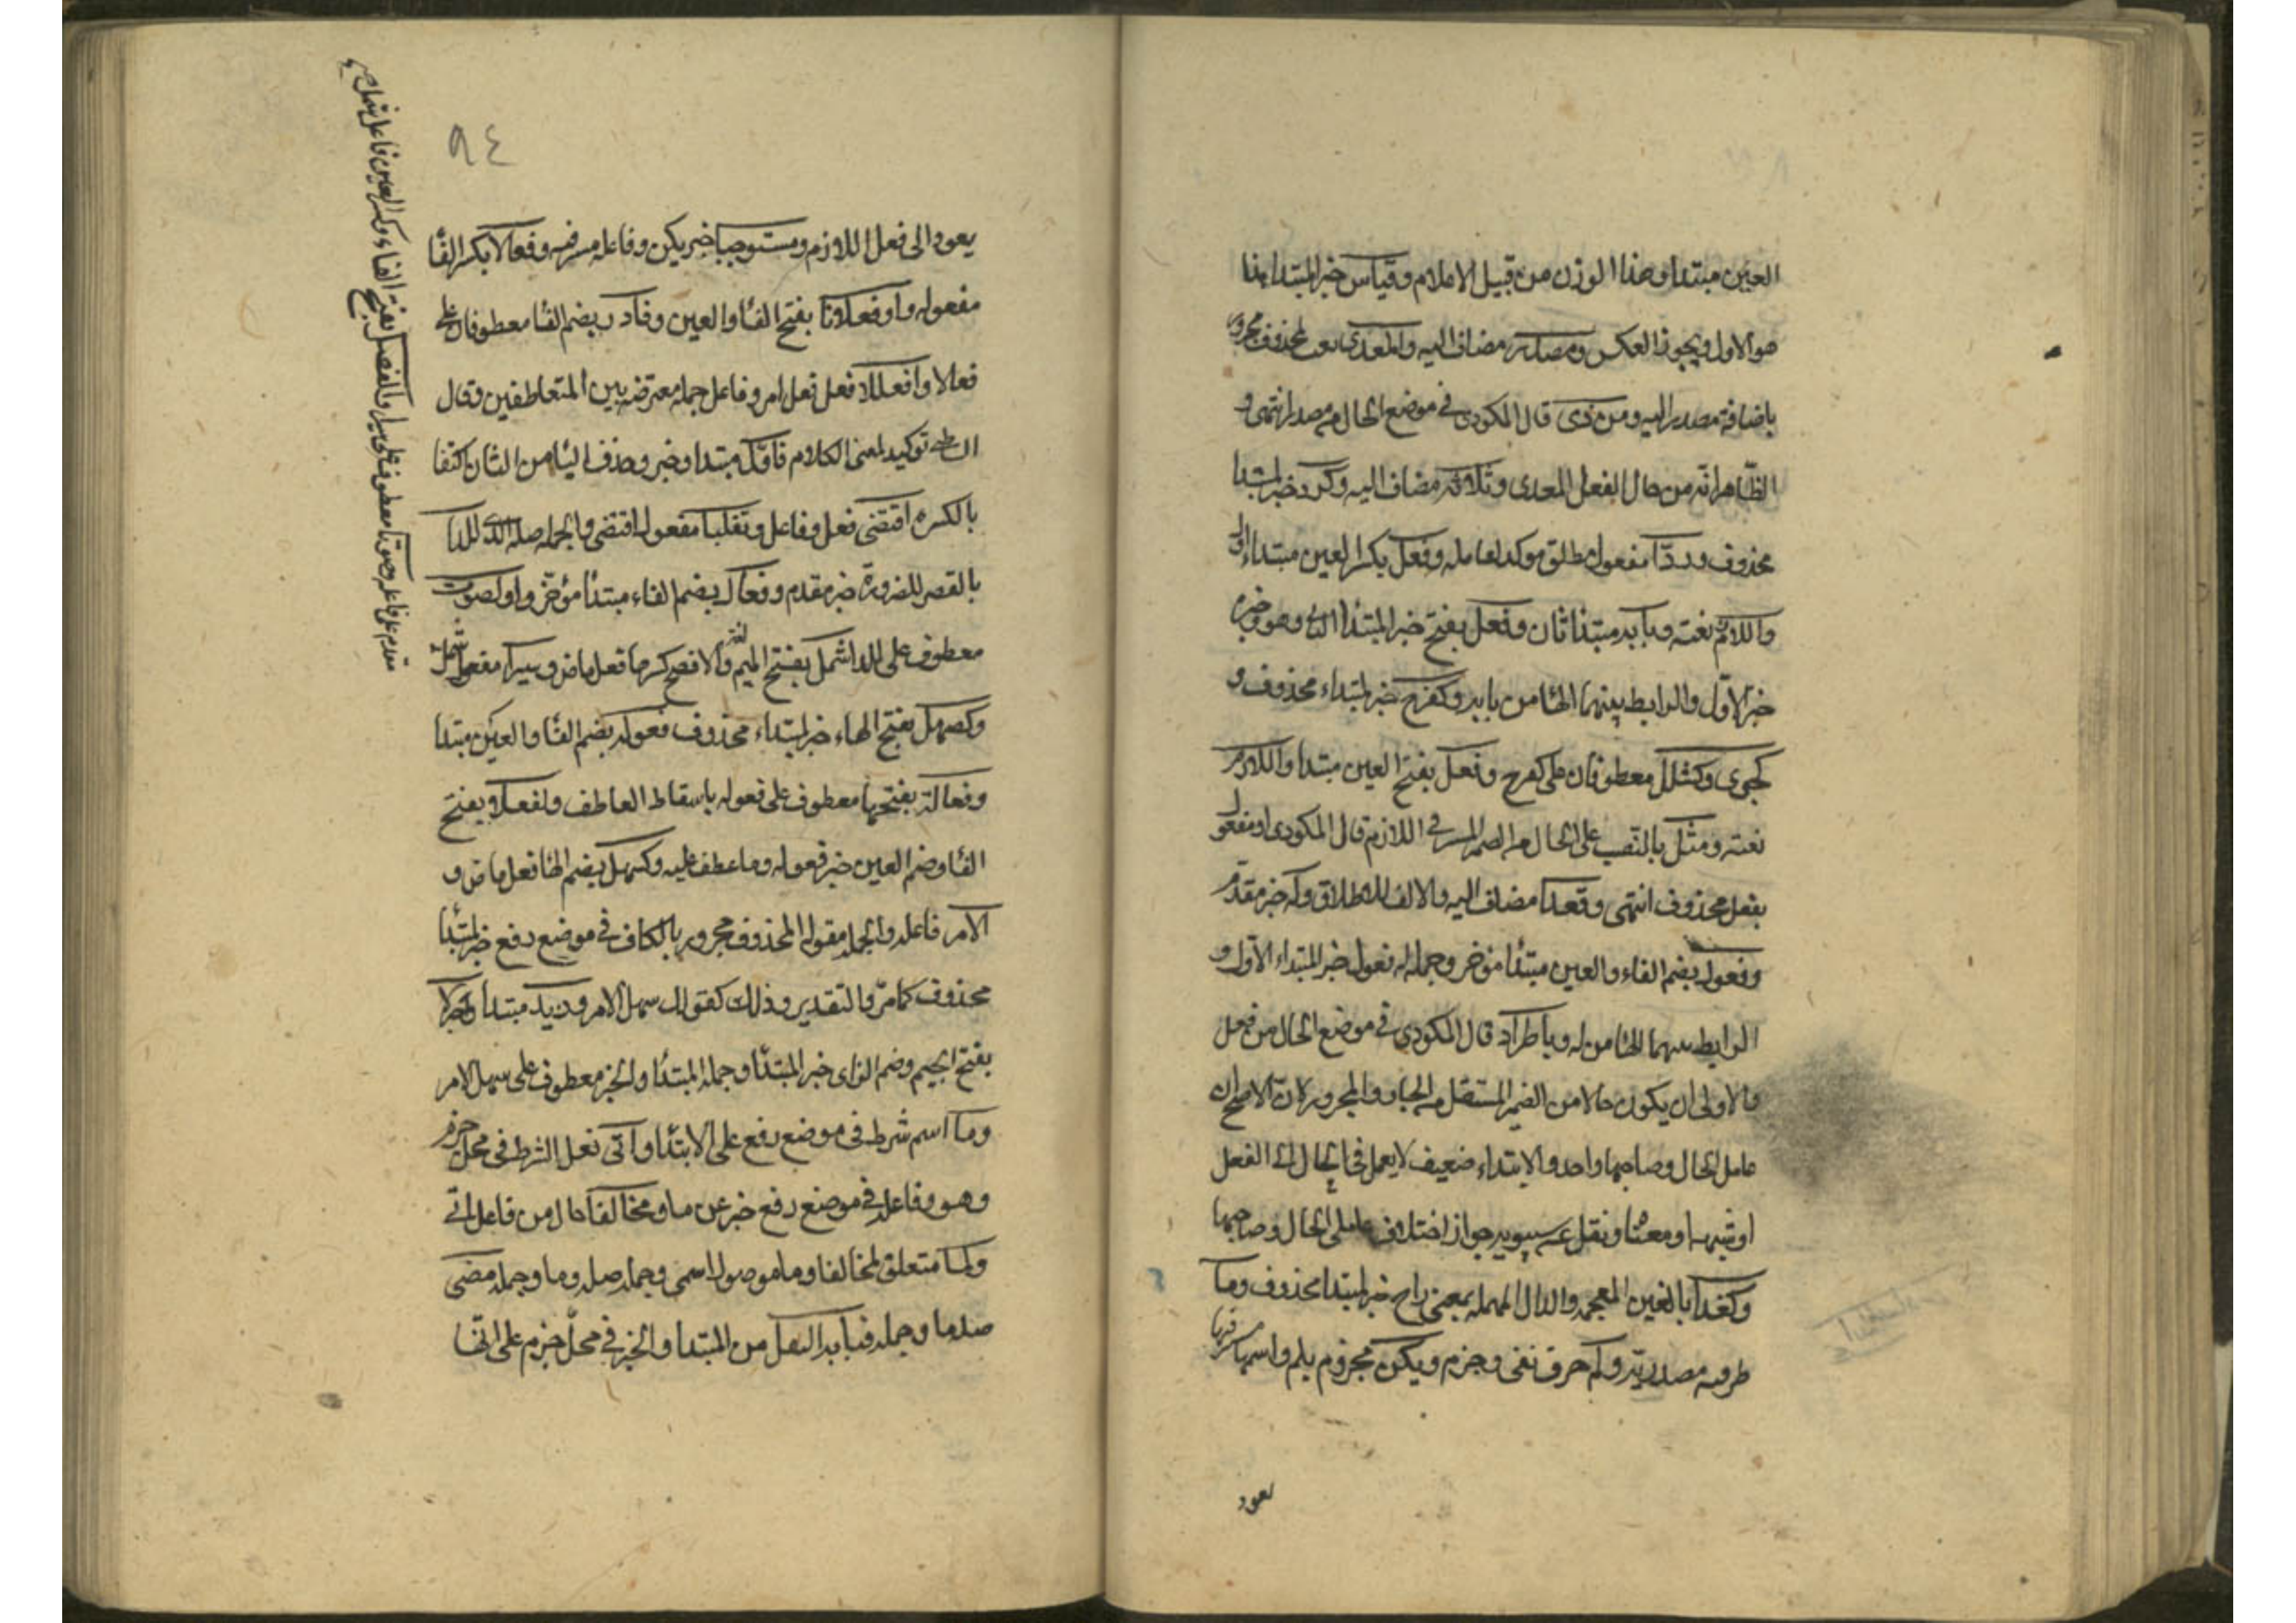 العين مبتدا وهذا الوزن من قبيل الاعلام وقياس خبر المبتدا هذا
هو الاول ويجوز العكس ومصدر مضاف اليه والمعدى نعت لمحذوف مجرور
باضافة مصدر اليه ومن ذى قال المكودى فى موضع الحال من مصدر انتهى و
الظاهر انه من حال الفعل المعدى وثلاثة مضاف اليه وكرد خبر لمبتدا
محذوف وردّا مفعول مطلق موكد لعامله وفعل بكسر العين مبتداء اول
واللازم نعته وبابه مبتدا ثان وفعل بفتح خبر المبتدا الثانى وهو وخبره
خبر الاول والرابط بينهما الها من بابه وكفرح خبر لمبتداء محذوف و
كجوى وكشلل معطوفان على كفرح وفعل بفتح العين مبتدا واللازم
نعته ومثل بالنصب على الحال من الضمير المستتر فى اللازم قال المكودى او مفعول
بفعل محذوف انتهى وقعدا مضاف اليه والالف للاطلاق وله خبر مقدم
وفعول بضم الفاء والعين مبتدأ مؤخر وجملة له فعول خبر المبتداء الاول و
الرابط بينهما الها من له وباطراد قال المكودى فى موضع الحال من فعل
والاولى ان يكون حالا من الضمير المستقل من الجار والمجرور لان الاصح ان
عامل الحال وصاحبها واحد والابتداء ضعيف لا يعمل فى الحال الا الفعل
او شبهه او معناه ونقل عن سيبويه جواز اختلاف عاملى الحال وصاحبها
وكغدا بالغين المعجمة والدال المهملة بمعنى راح خبر لمبتدا محذوف وما
ظرفية مصدرية ولم حرف نفى وجزم ويكن مجزوم بلم واسمها مستتر فيها
يعود
٩٤
يعود الى فعل اللازم ومستوجبا خبر يكن وفاعله مستتر فيه وفعالا بكسر الفا
مفعوله واو فعلانا بفتح الفا والعين وفادر بضم الفا معطوفان على
فعالا وافعلالا فعل فعل امر وفاعل جملة معترضة بين المتعاطفين وقال
الشاطبى توكيد لمعنى الكلام فاوّل مبتدا وخبر وحذف اليا من الثانى اكتفا
بالكسرة اقتضى فعل وفاعل وتقلبا مفعول اقتضى والجملة صلة الذى للدا
بالقصر للضرورة خبر مقدم وفعال بضم الفاء مبتدأ مؤخر واو لصوت
معطوف على للدا شمل بفتح الميم لغة والافصح كسرها فعل ماض وسيرا مفعول شمل
وكصهل بفتح الهاء خبر لمبتداء محذوف فعولة بضم الفا والعين مبتدا
وفعالة بفتحها معطوف على فعولة باسقاط العاطف ولفعلا بفتح
الفا وضم العين خبر فعولة وما عطف عليه وكسهل بضم الها فعل ماض و
الامر فاعله والجملة مقولة المحذوف مجرور بالكاف فى موضع رفع خبر لمبتدأ
محذوف كما مرّ والتقدير وذلك كقولك سهل الامر وزيد مبتدا وجزلا
بفتح الجيم وضم الزاى خبر المبتدأ وجملة المبتدأ والخبر معطوف على سهل الامر
وما اسم شرط فى موضع رفع على الابتدا واتى فعل الشرط فى محل جزم
وهو وفاعله فى موضع رفع خبر عن ما ومخالفا حال من فاعل اتى
ولما متعلق لمخالفا وما موصول اسمى وجملة صلة وما وجملة مضى
صلة ما وجملة فبابه النقل من المبتدا والخبر فى محل جزم على انها
معطوف على سيرا والفصيل بفتح الفاء وكسر العين فاعل شمل
مقدم على فاعله وصوتا معطوف على